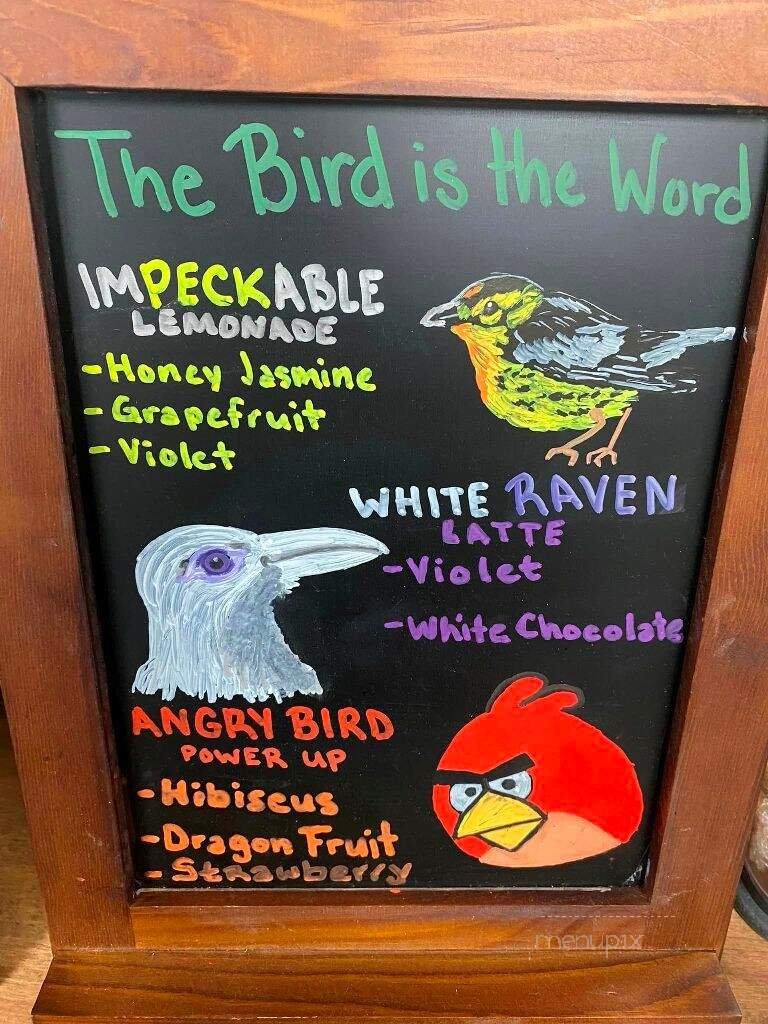 The Bird is the Word
IMPECKABLE
LEMONADE
- Honey Jasmine
- Grapefruit
- Violet
WHITE RAVEN
LATTE
- Violet
- White Chocolate
ANGRY BIRD
POWER UP
- Hibiscus
- Dragon Fruit
- Strawberry
menupix